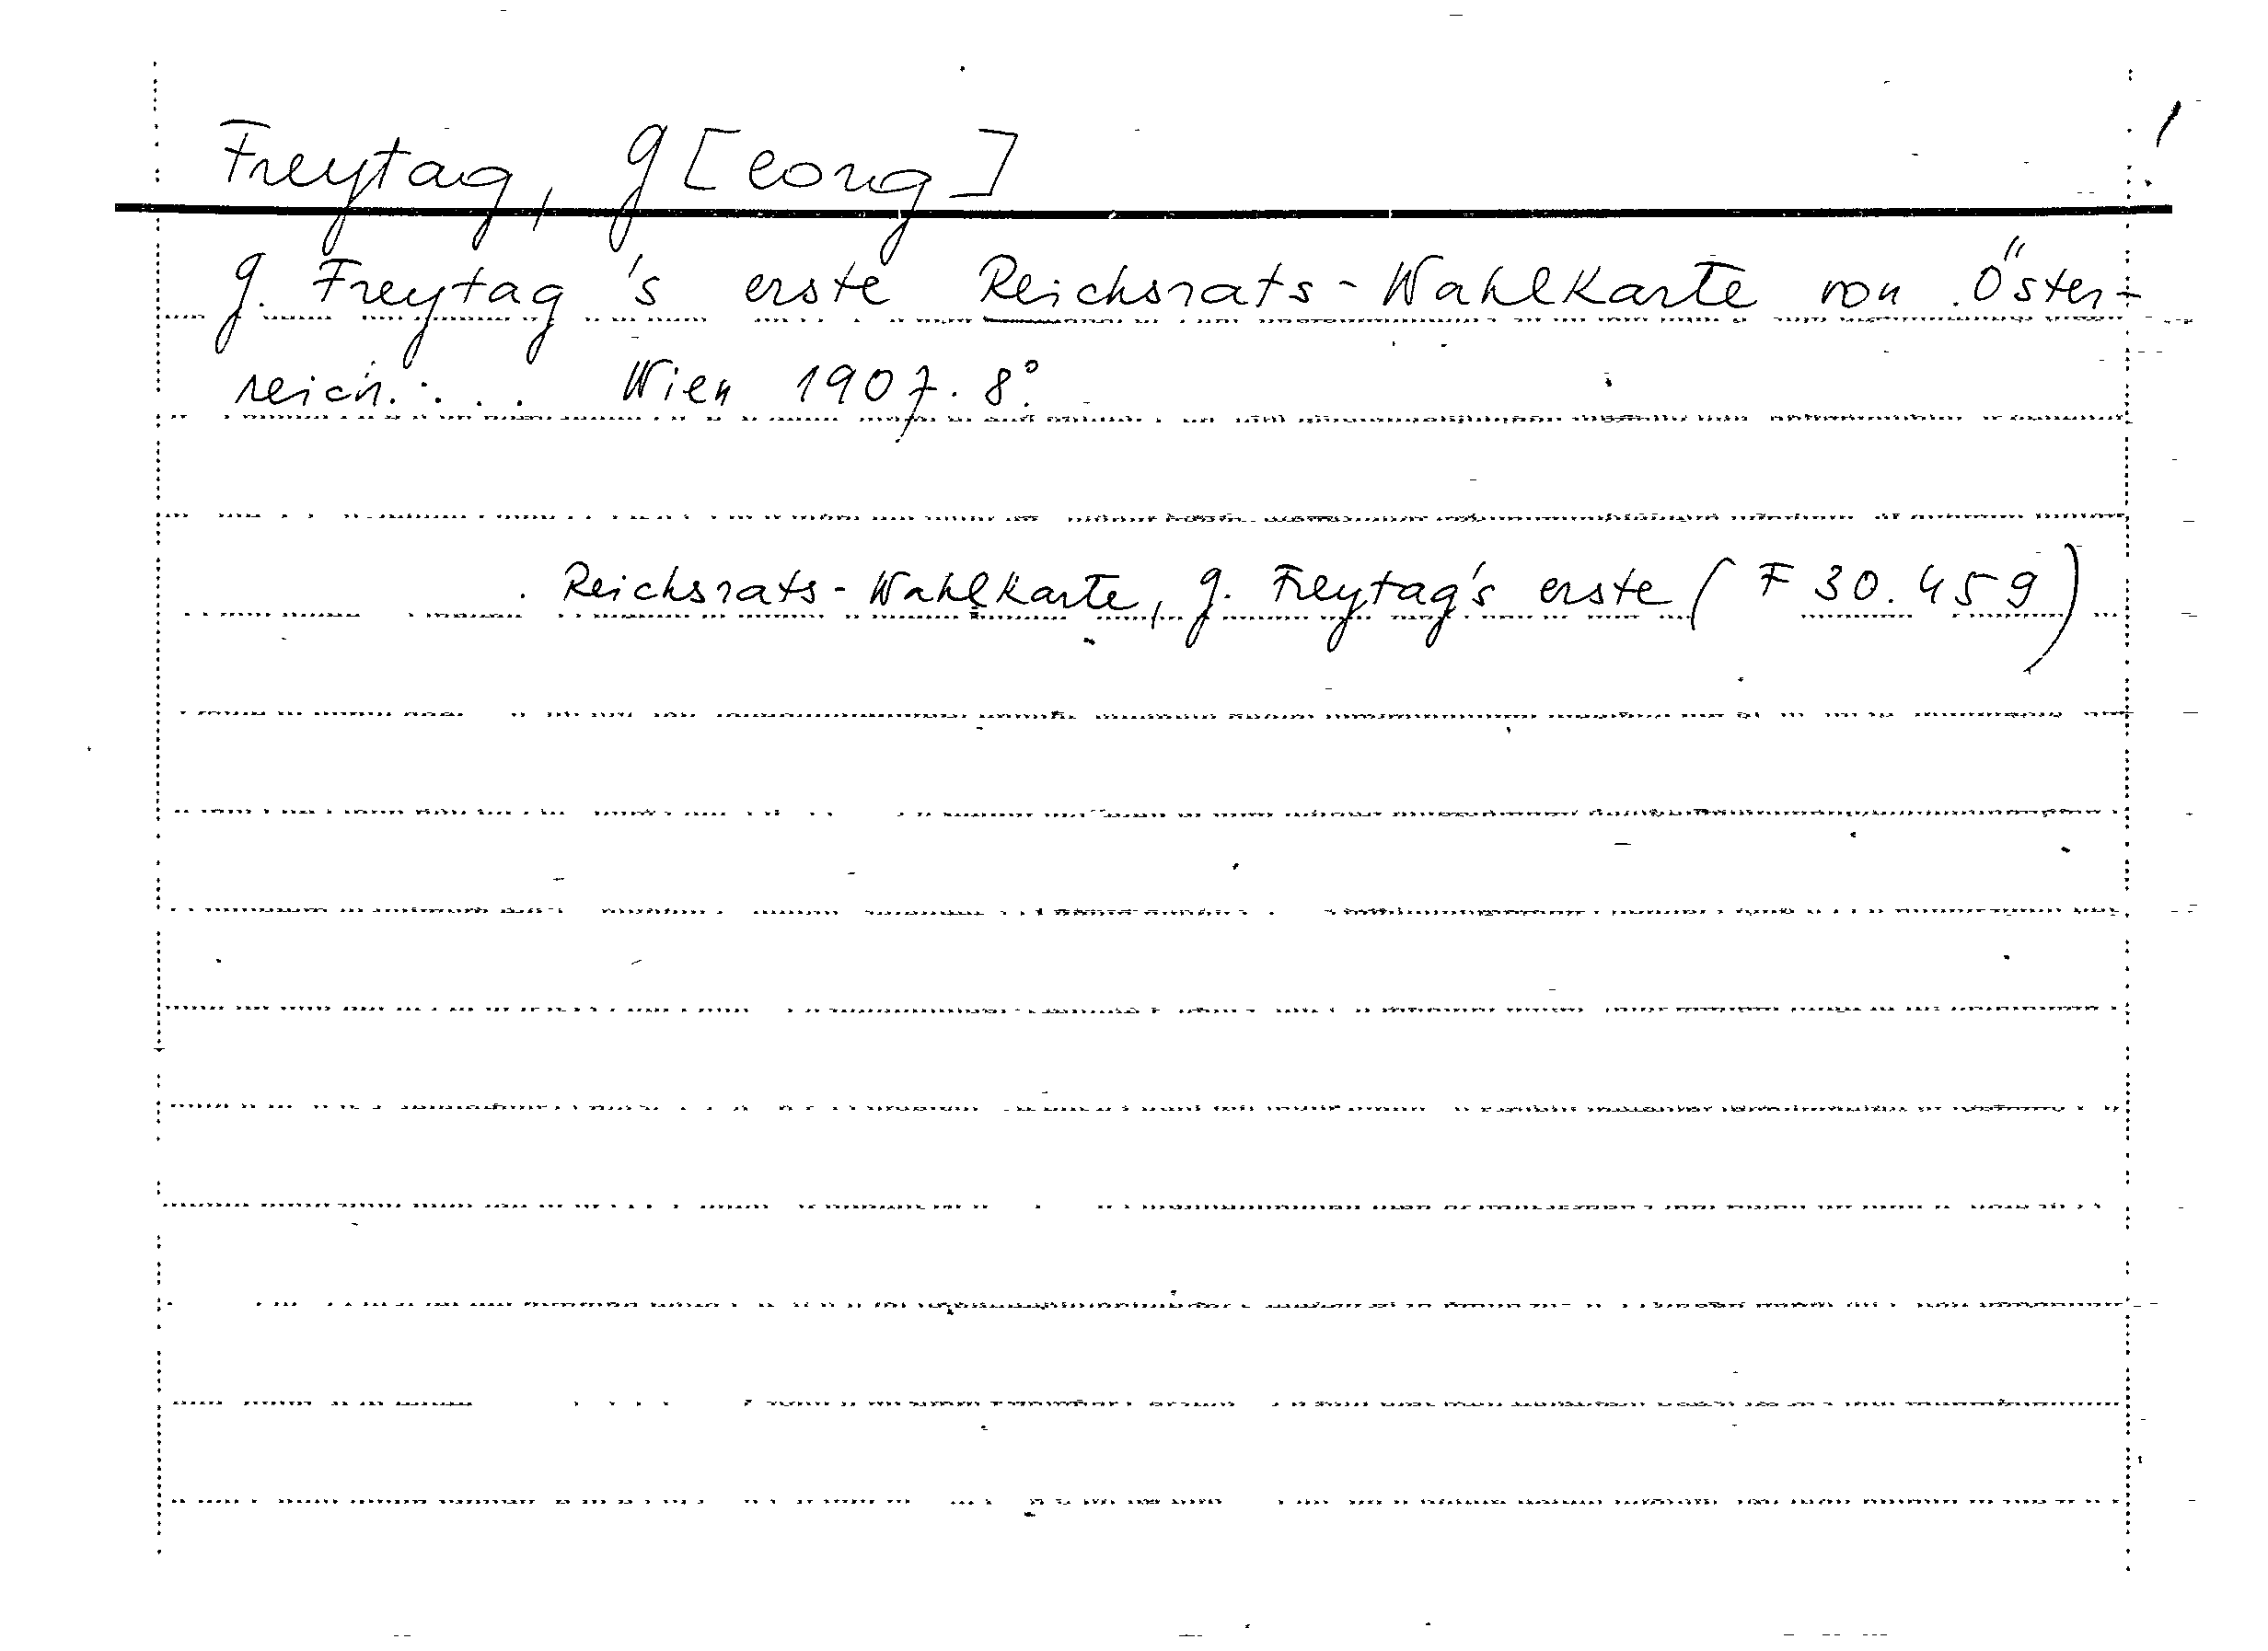 Freytag, G[eorg]
G. Freytag's erste Reichsrats-Wahlkarte von Öster-
reich. . . . Wien 1907. 8°.
Reichsrats-Wahlkarte, G. Freytag's erste (F 30.459)